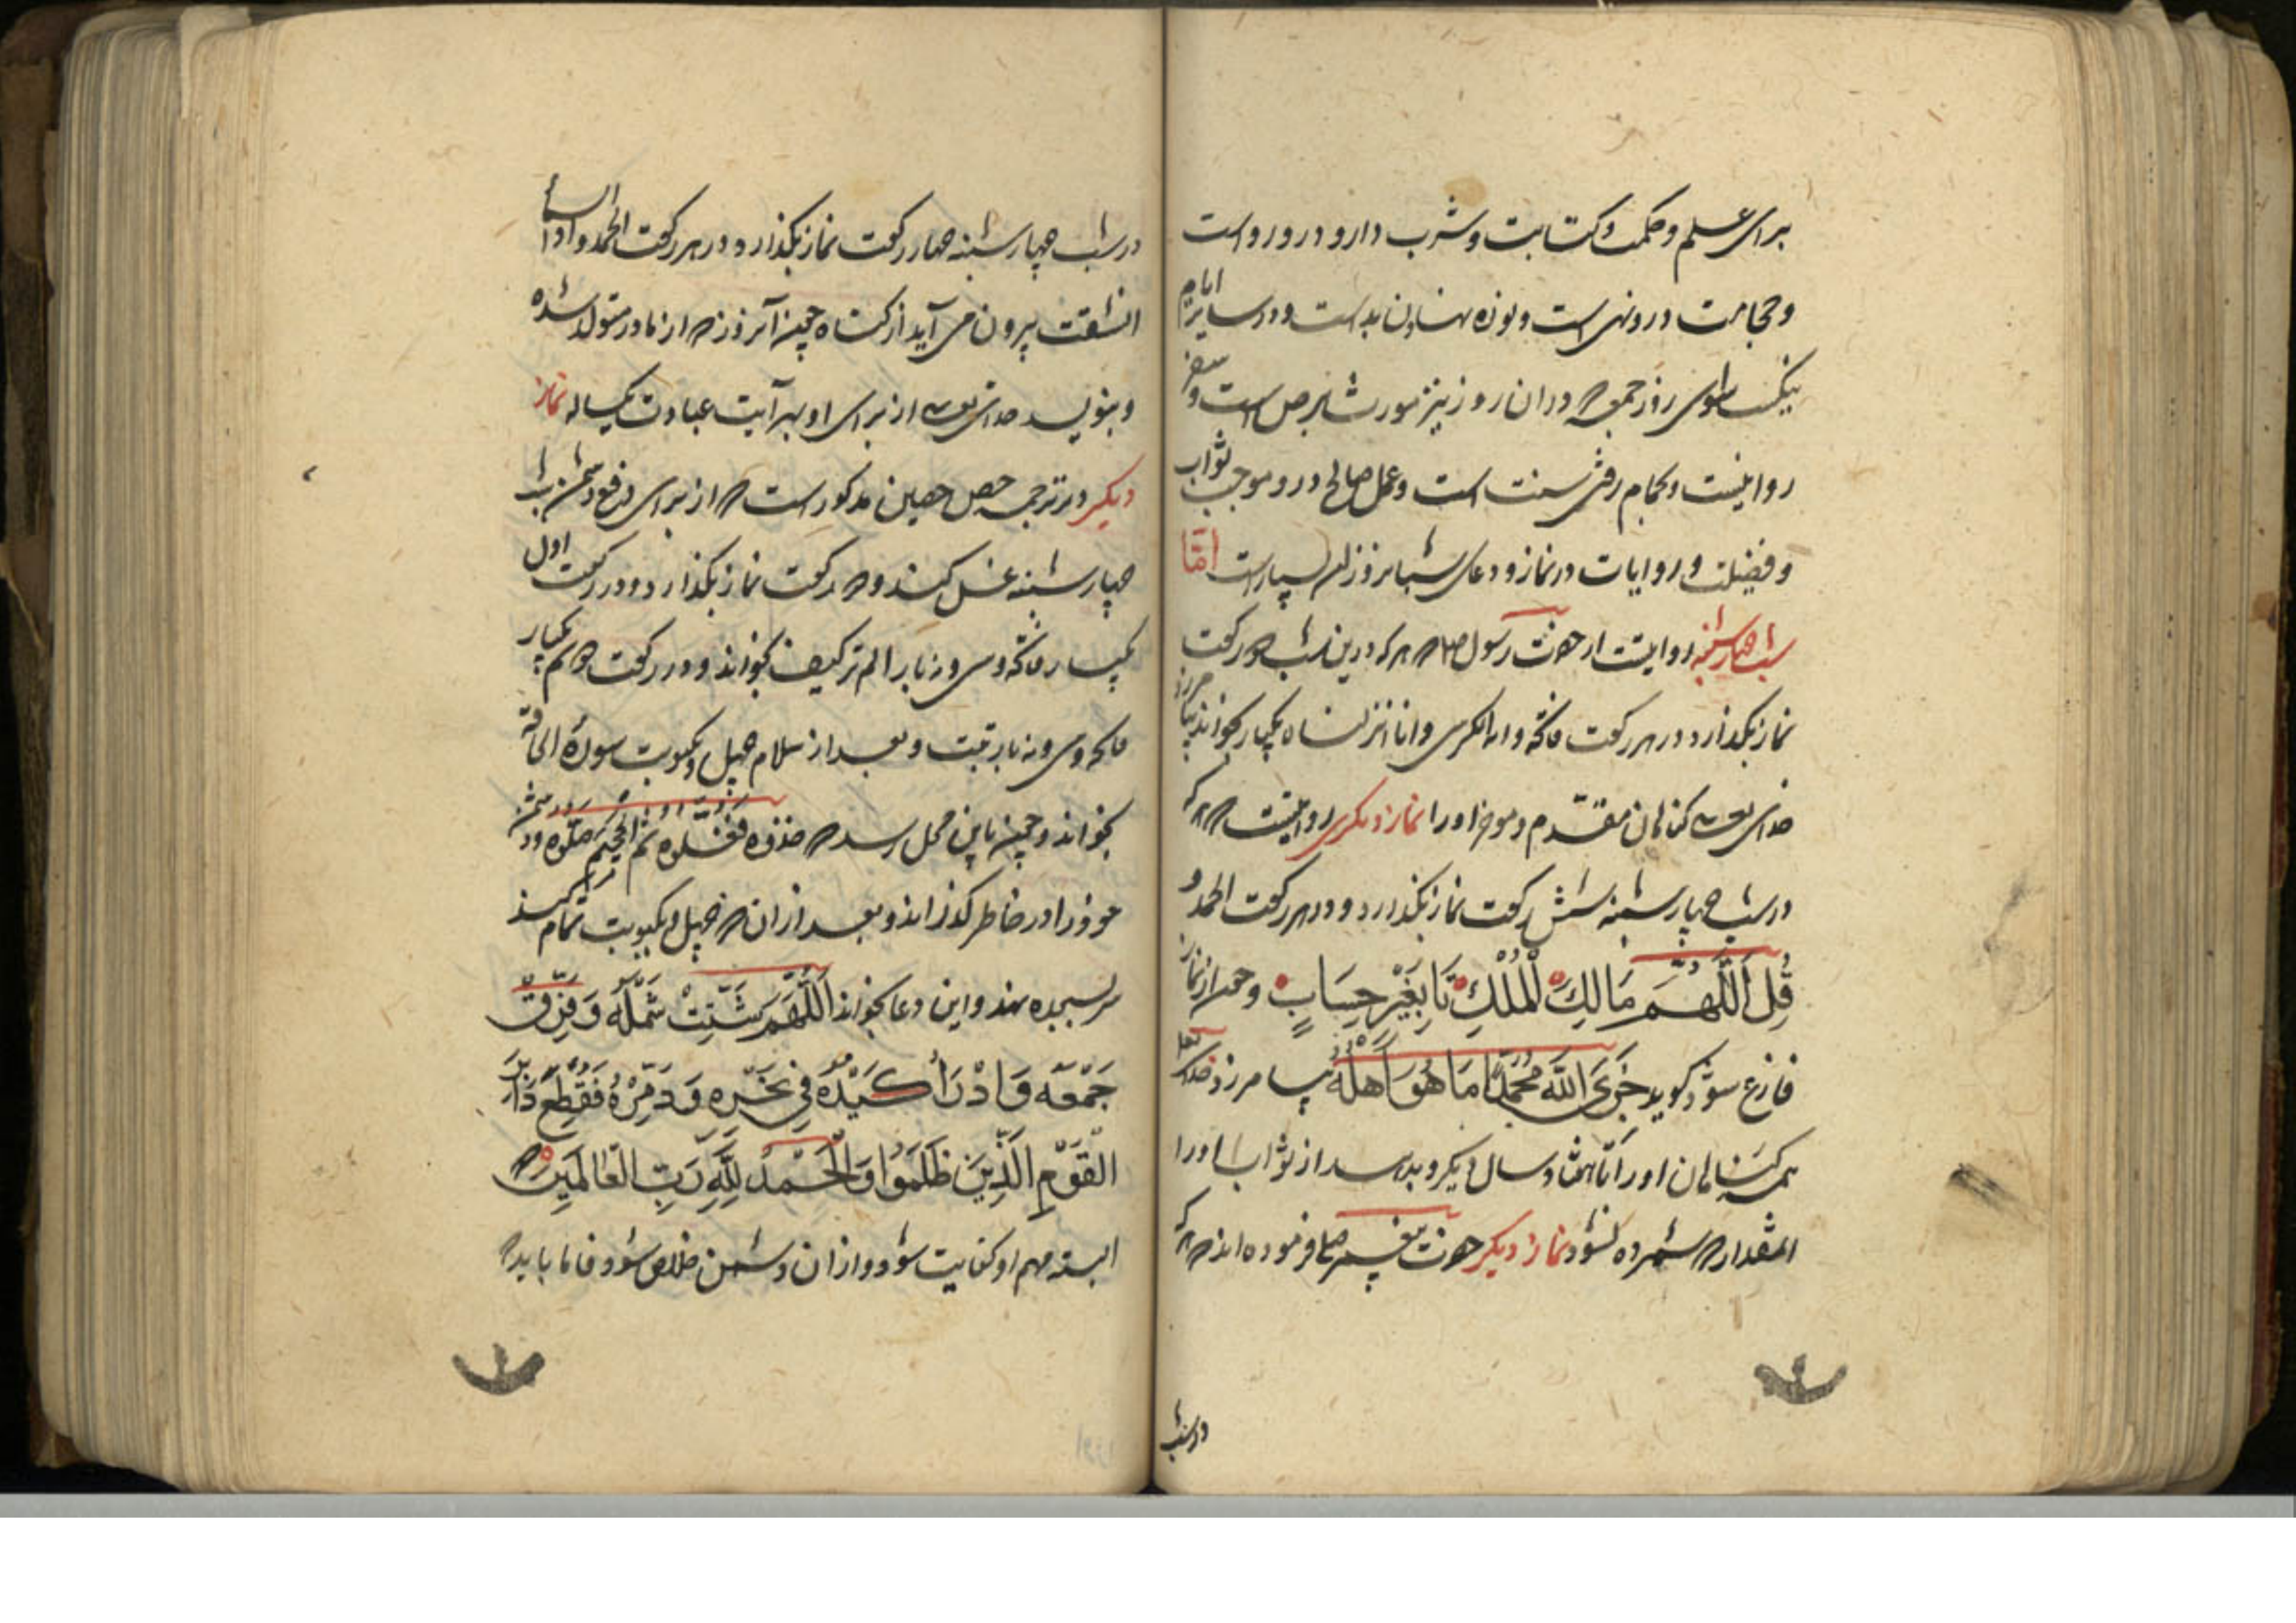 برای علم و حکمت و کتابت و شرب دارو درو رواست
و حجامت درو نهی است و نوره نهادن بد است و در سایر ایام
نیک سوای روز جمعه که دران روز نیز مورث برص است و سفر
روا نیست و بحمام رفتن سنت است و عمل صالح درو موجب ثواب
و فضیلت و روایات در نماز و دعای شبانروز او بسیار است امّا
شب چهارشنبه روایت از حضرت رسول صلعم که هر که درین شب دو رکعت
نماز بگذارد و در هر رکعت فاتحه و آیة الکرسی و انا انزلناه یکبار بخواند بیامرزد
خدای تعالی گناهان مقدم و موخر او را نماز دیگر روایتست که هر که
در شب چهارشنبه شش رکعت نماز بگذارد و در هر رکعت الحمد و
قُلِ اللَّهُمَّ مَالِكَ الْمُلْكِ تا بِغَيْرِ حِسَابٍ و چون از نماز
فارغ شود گوید جَزَى اللَّهُ مُحَمَّدًا مَا هُوَ أَهْلُهُ بیامرزد خدای تعالی
همه گناهان او را تا هفتاد سال دیگر و بدهد از ثواب او را
آنمقدار که شمرده نشود نماز دیگر حضرت پیغمبر صلعم فرموده اند که هر که
در شب
در شب چهارشنبه چهار رکعت نماز بگذارد و در هر رکعت الحمد و اذا السماء
انشقت بیرون می آید از گناه چون آنروز که از مادر متولد شده
و بنویسد خدای تعالی از برای او بهر آیت عبادت یکساله نماز
دیگر در ترجمه حصن حصین مذکور است که از برای دفع دشمن شب
چهارشنبه غسل کند و دو رکعت نماز بگذارد و در رکعت اول
یکبار فاتحه و سی و نه بار الم تر کیف بخواند و در رکعت دوم یکبار
فاتحه و سی و نه بار تبت و بعد از سلام چهل و یک نوبت سورهٔ الحاقة
بخواند و چون باین محل رسد که خذوه فغلوه ثم الجحیم صلوه دشمن
خود را در خاطر گذراند و بعد ازان که چهل و یک نوبت تمام کند
سر بسجده نهد و این دعا بخواند اَللَّهُمَّ شَتِّتْ شَمْلَهُ وَفَرِّقْ
جَمْعَهُ وَادْرَأْ كَيْدَهُ فِي نَحْرِهِ وَدَمِّرْهُ فَقُطِعَ دَابِرُ
الْقَوْمِ الَّذِينَ ظَلَمُوا وَالْحَمْدُ لِلَّهِ رَبِّ الْعَالَمِينَ که
البته مهم او کفایت شود و ازان دشمن خلاص شود فاما باید که